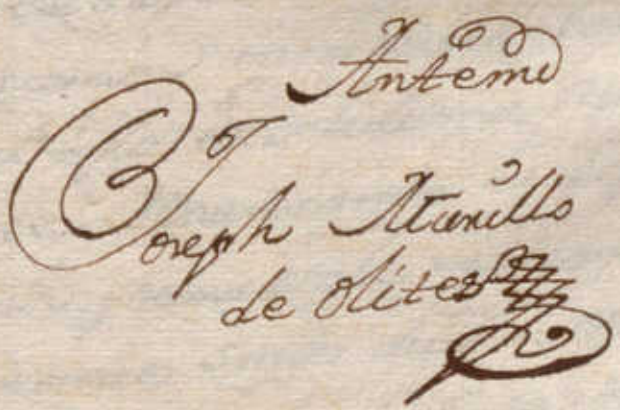 Antemi
Joseph Murillo
de olites